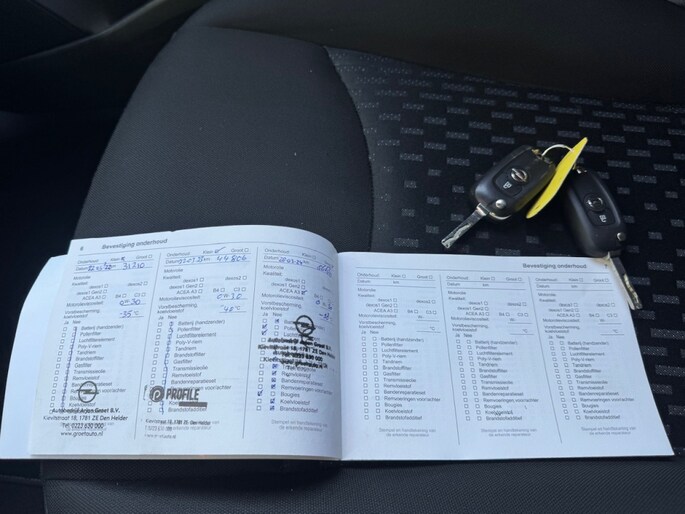 6 Bevestiging onderhoud
Onderhoud Klein Groot
Datum 31710
Motorolie
Kwaliteit
dexos1 dexos2
dexos1 Gen2
ACEA A3 B4 C3
Motorolieviscositeit 0W30
Voorbescherming
koelvloeistof -35°C
Ja Nee
Batterij (handzender)
Pollenfilter
Luchtfilterelement
Poly-V-riem
Tandriem
Brandstoffilter
Gasfilter
Transmissieolie
Remvloeistof
Bandenreparatieset
Autobedrijf Arjen Groet B.V.
Kievitstraat 18, 1781 ZE Den Helder
Tel. 0223 630 000
www.groetauto.nl
Onderhoud Klein Groot
Datum 44806
Motorolie
Kwaliteit
dexos1 dexos2
dexos1 Gen2
ACEA A3 B4 C3
Motorolieviscositeit 0W30
Voorbescherming
koelvloeistof -40°C
Ja Nee
Batterij (handzender)
Pollenfilter
Luchtfilterelement
Poly-V-riem
Tandriem
Brandstoffilter
Gasfilter
Transmissieolie
Remvloeistof
Bandenreparatieset
Remvoeringen voor/achter
PROFILE
Kievitstraat 18, 1781 ZE Den Helder
Onderhoud Klein Groot
Datum
Motorolie
Kwaliteit
dexos1 dexos2
dexos1 Gen2
ACEA A3 B4 C3
Motorolieviscositeit
Voorbescherming
koelvloeistof
Ja Nee
Autobedrijf Arjen Groet B.V.
Kievitstraat 18, 1781 ZE Den Helder
Tel. 0223 630 000
Transmissieolie
Remvloeistof
Bandenreparatieset
Remvoeringen voor/achter
Bougies
Koelvloeistof
Brandstofadditief
Stempel en handtekening van
de erkende reparateur
Bevestiging onderhoud
Onderhoud Klein Groot
Datum km
Motorolie
Kwaliteit
dexos1 dexos2
dexos1 Gen2
ACEA A3 B4 C3
Motorolieviscositeit W-
Voorbescherming
koelvloeistof °C
Ja Nee
Batterij (handzender)
Pollenfilter
Luchtfilterelement
Poly-V-riem
Tandriem
Brandstoffilter
Gasfilter
Transmissieolie
Remvloeistof
Bandenreparatieset
Remvoeringen voor/achter
Bougies
Koelvloeistof
Brandstofadditief
Stempel en handtekening van
de erkende reparateur
Onderhoud Klein Groot
Datum km
Motorolie
Kwaliteit
dexos1 dexos2
dexos1 Gen2
ACEA A3 B4 C3
Motorolieviscositeit W-
Voorbescherming
koelvloeistof °C
Ja Nee
Batterij (handzender)
Pollenfilter
Luchtfilterelement
Poly-V-riem
Tandriem
Brandstoffilter
Gasfilter
Transmissieolie
Remvloeistof
Bandenreparatieset
Remvoeringen voor/achter
Bougies
Koelvloeistof
Brandstofadditief
Stempel en handtekening van
de erkende reparateur
Onderhoud Klein Groot
Datum km
Motorolie
Kwaliteit
dexos1 dexos2
dexos1 Gen2
ACEA A3 B4 C3
Motorolieviscositeit W-
Voorbescherming
koelvloeistof °C
Ja Nee
Batterij (handzender)
Pollenfilter
Luchtfilterelement
Poly-V-riem
Tandriem
Brandstoffilter
Gasfilter
Transmissieolie
Remvloeistof
Bandenreparatieset
Remvoeringen voor/achter
Bougies
Koelvloeistof
Brandstofadditief
Stempel en handtekening van
de erkende reparateur